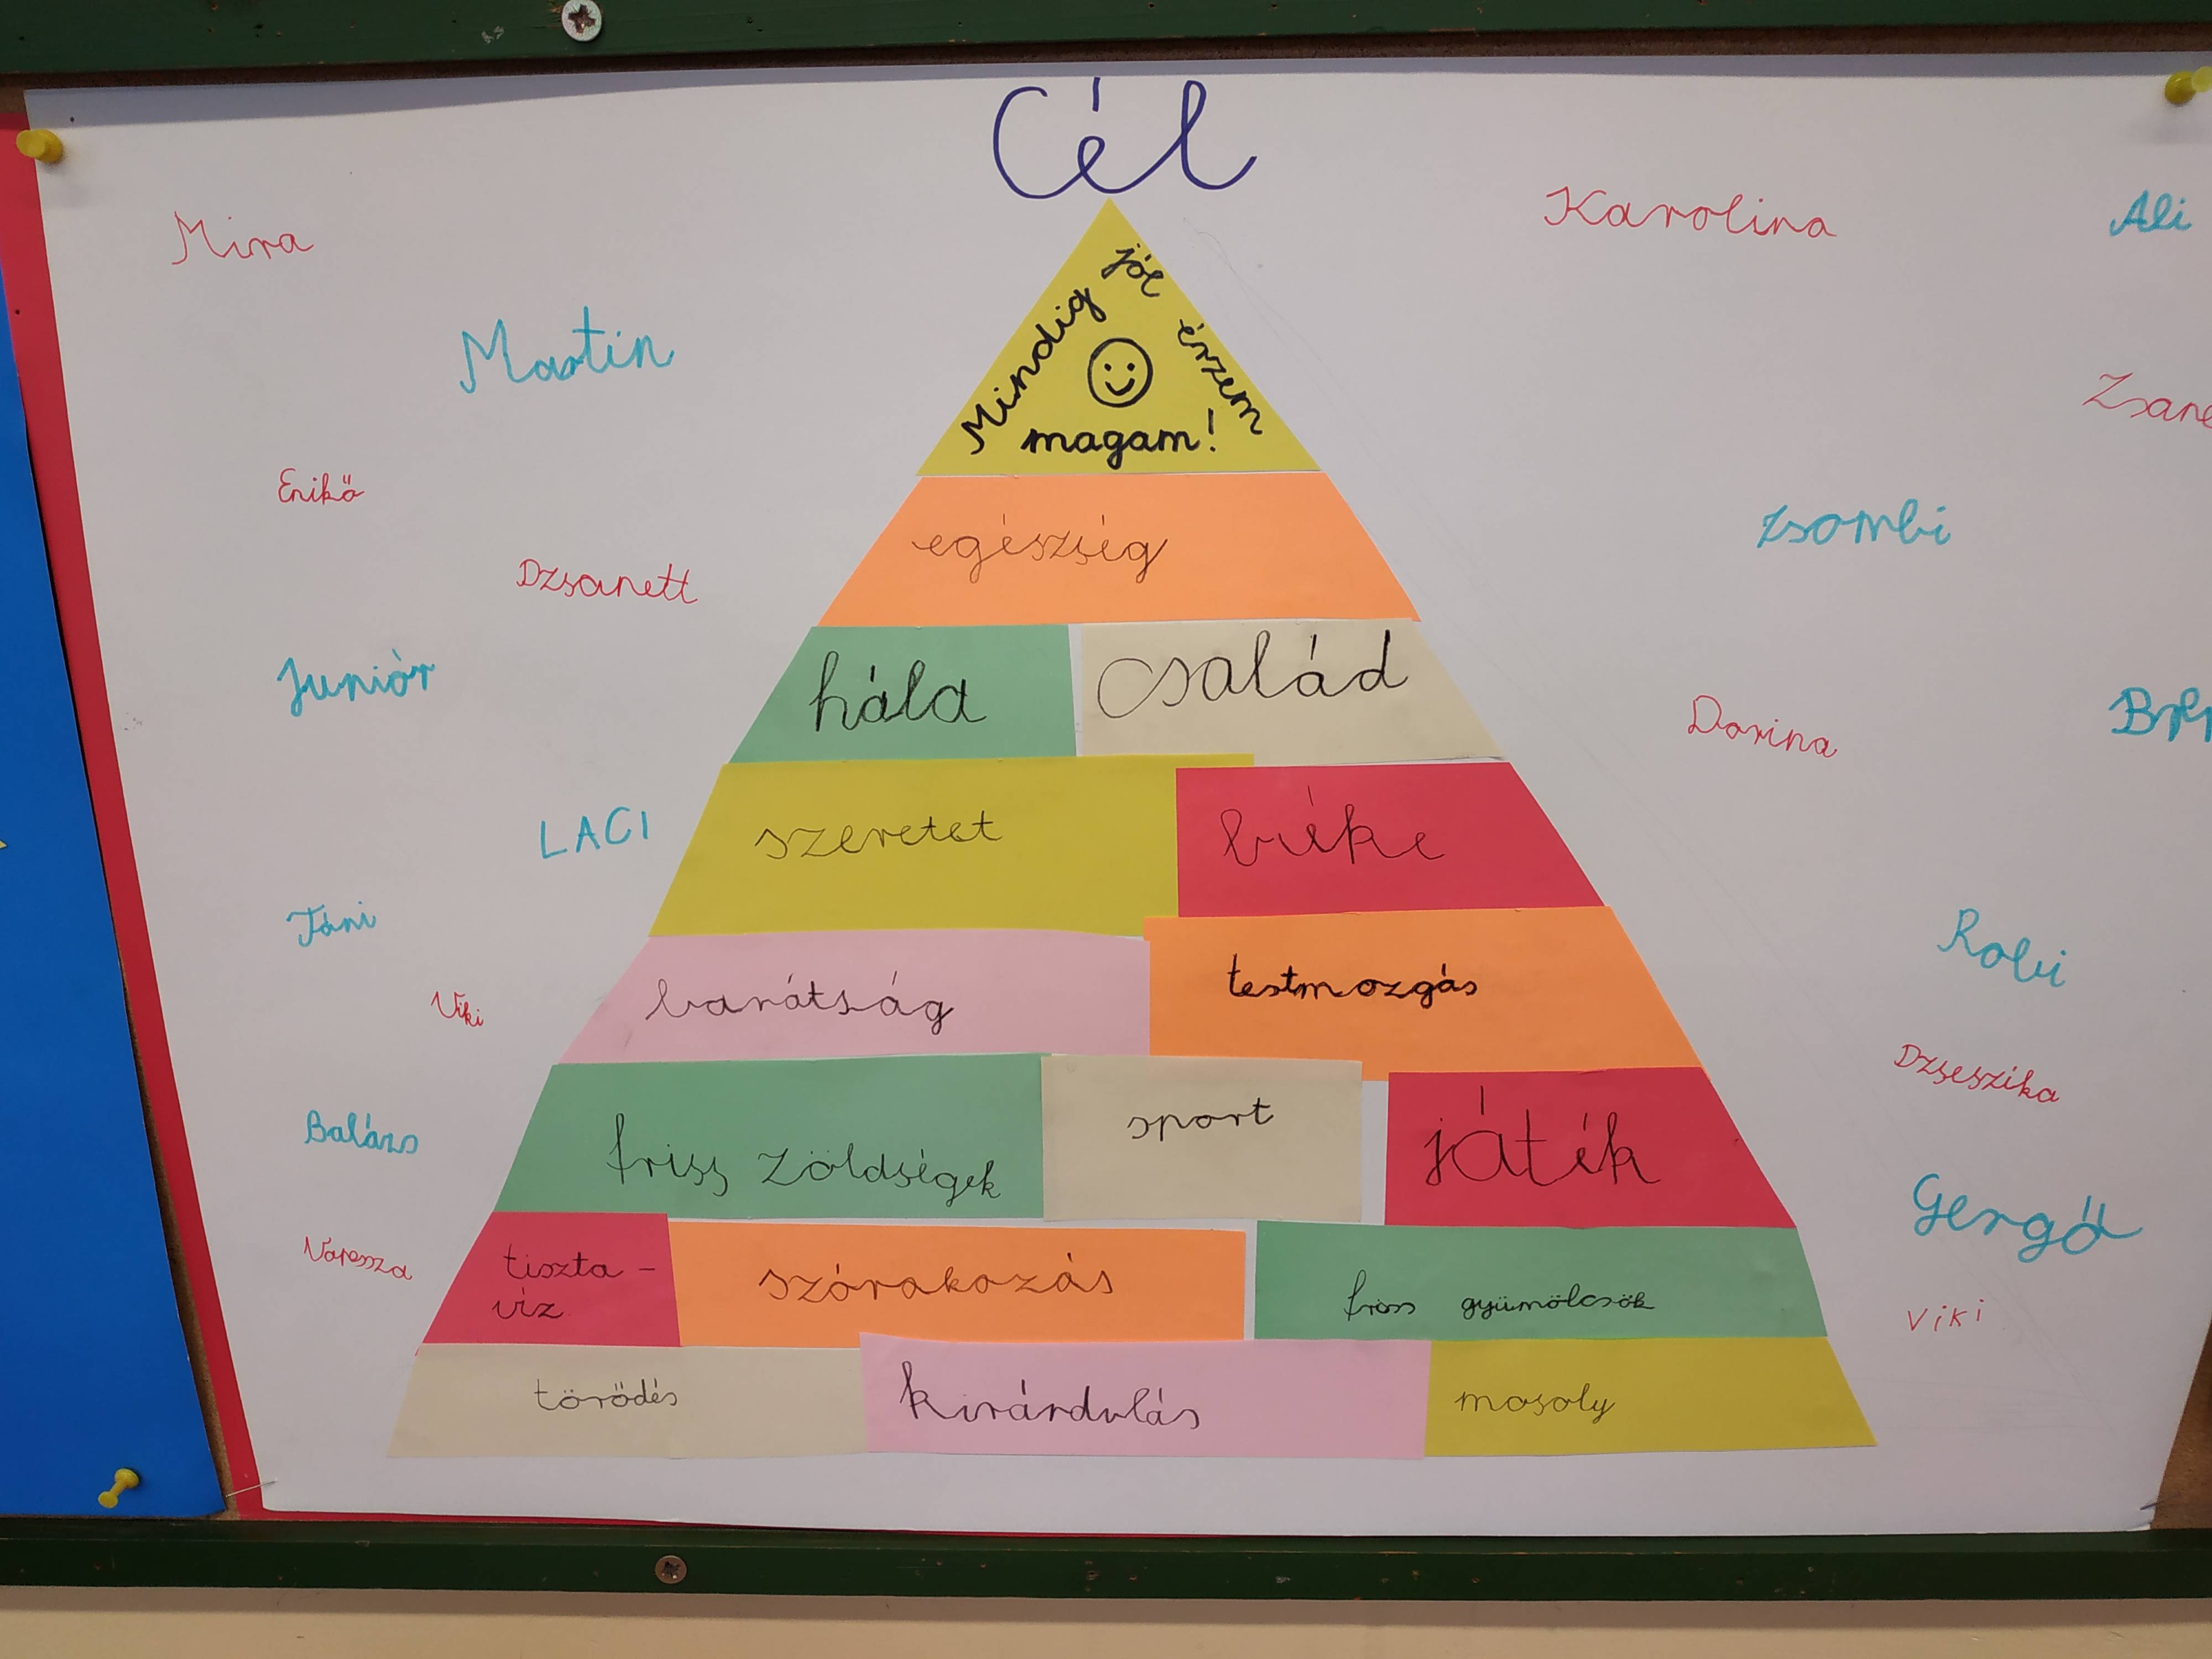 Cél
Mira
Karolina
Ali
Mindig jól érzem magam!
Martin
Zsane
Enikő
Zsombi
egészség
Dzsanett
Juniòr
hála
család
Dorina
LACI
szeretet
béke
Táni
Robi
Viki
barátság
testmozgás
Dzseszika
Balázs
friss zöldségek
sport
játék
Gergő
tiszta-
víz
szórakozás
friss gyümölcsök
Viki
törődés
kirárdulás
mosoly